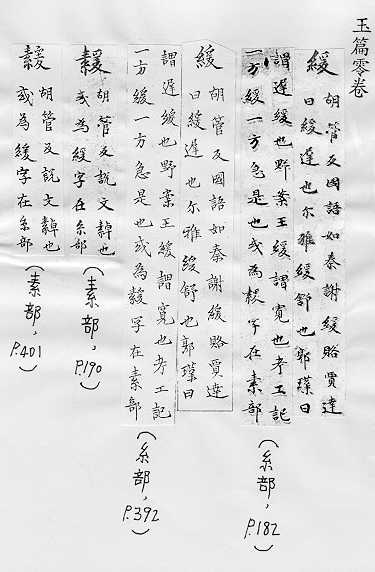 玉篇零卷
緩 胡管反國語如秦謝緩賂賈逵
曰緩遲也尔雅緩舒也郭璞曰
謂遲緩也野案王緩謂寛也考工記
一方緩一方急是也或為𦃣字在素部
(糸部,P.182)
緩 胡管反國語如秦謝緩賂賈逵
曰緩遲也尔雅緩舒也郭璞曰
謂遲緩也野案王緩謂寛也考工記
一方緩一方急是也或為字在素部
(糸部,P.392)
胡管反說文繛也
或為緩字在糸部
(素部,P.190)
胡管反說文繛也
或為緩字在糸部
(素部,P.401)